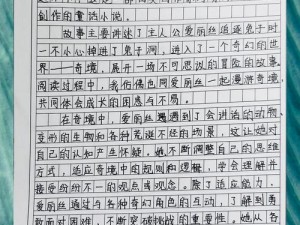 创作的童话小说。
故事主要讲述了主人公爱丽丝追逐兔子时
一不小心掉进了兔子洞，进入了一个奇幻的世
界——奇境，展开一场不可思议的冒险的故事。
阅读过程中，我仿佛也同爱丽丝一起漫游奇境，
共同体会成长的困惑与不易。
在奇境中，爱丽丝遇遇到了会讲话的动物、
变形的生物和各种荒诞不径的场景，这让她对
自己的认知产生怀疑。她不断调整自己的思维
方式，适应奇境中的规则和逻辑，学会理解并
接受纷纷不一的观点或观念。除了适应能力，
爱丽丝通过与各种奇幻角色的互动，了解到勇
敢面对困难，不断突破挑战的重要性。她从各